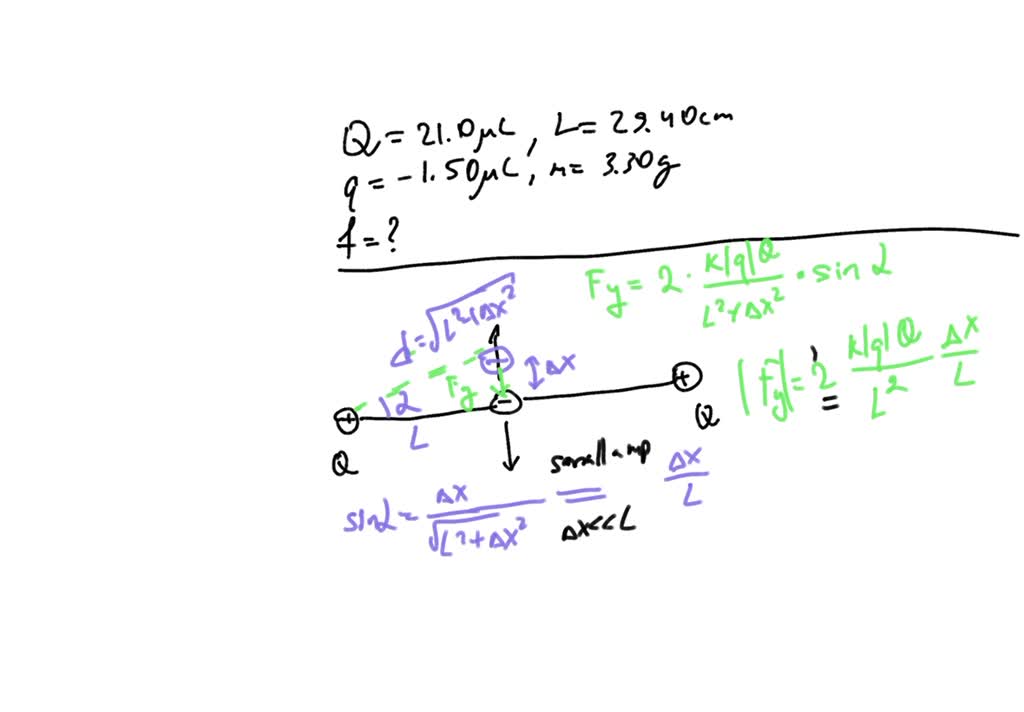 Q = 21.0μC, L = 29.40cm
q = -1.50μC, m = 3.30g
f = ?
F_y = 2 · k|q|Q / (L²+Δx²) · sin α
d = √(L²+Δx²)
Δx
F_y
α
L
Q
Q
|F_y| = 2 k|q|Q / L² Δx / L
sin α = Δx / √(L²+Δx²) = Δx / L
small amp
Δx << L